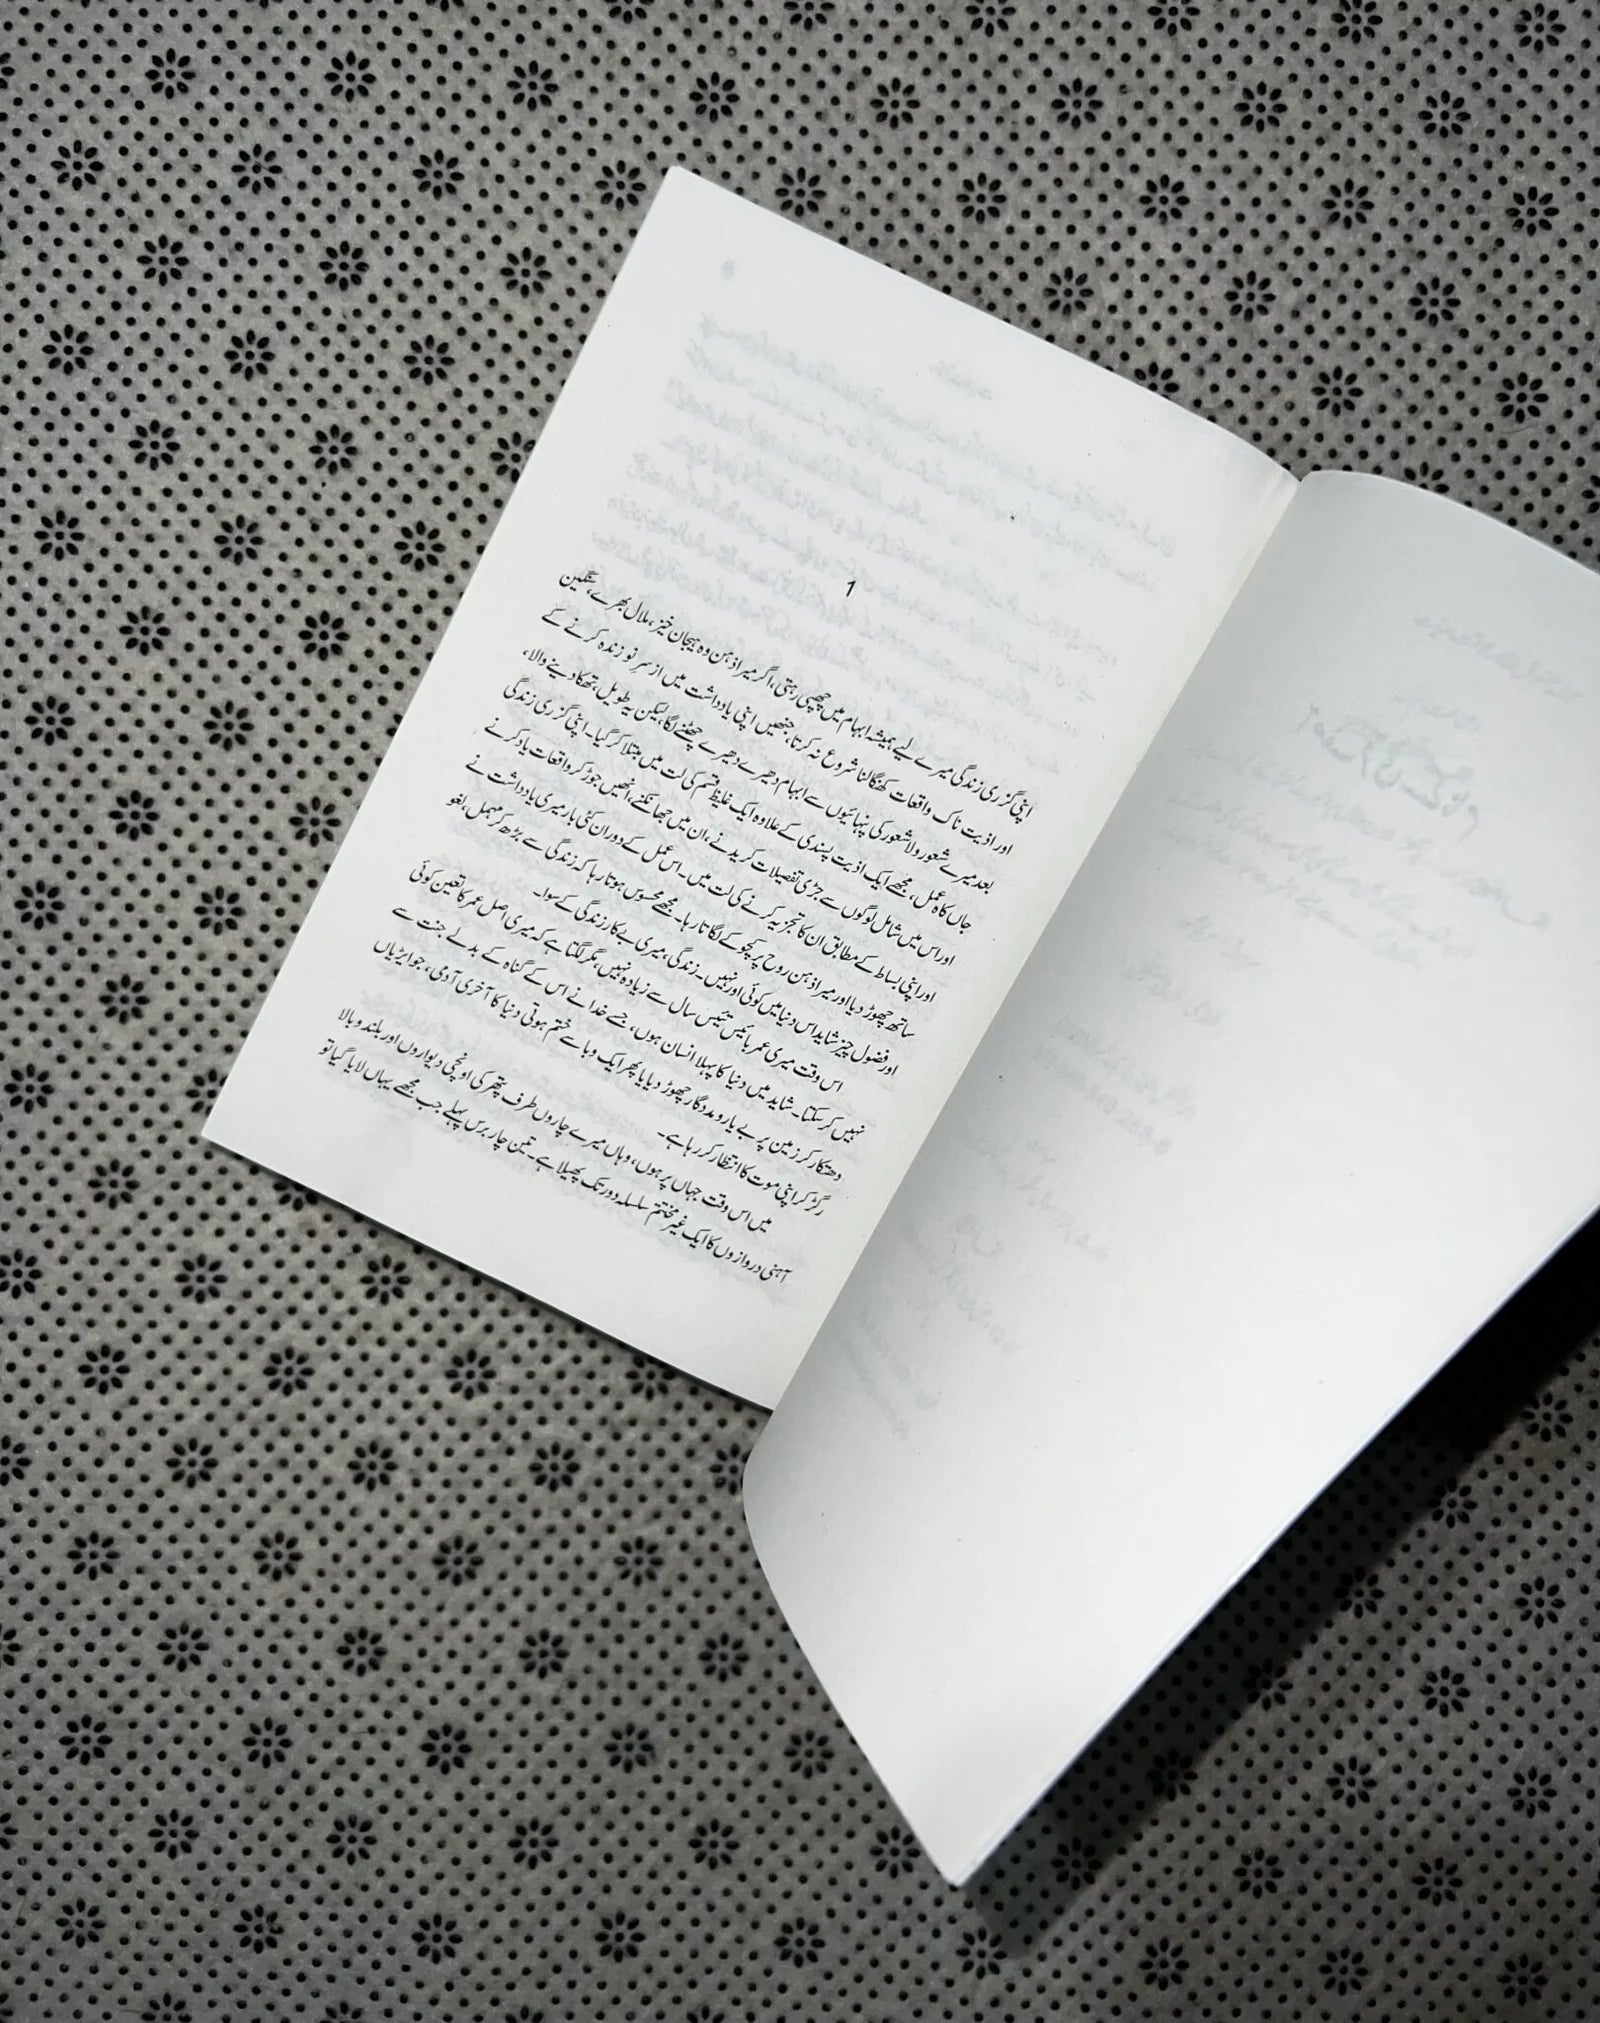 1
اپنی گزری زندگی میرے لیے ہمیشہ ابہام میں چھپی رہتی، اگر میرا ذہن وہ ہیجان خیز، ملال بھرے، سنگین
اور اذیت ناک واقعات کھنگالنا شروع نہ کرتا، جنھیں اپنی یادداشت میں از سرِ نو زندہ کرنے کے
بعد میرے شعور و لاشعور کی پنہائیوں سے ابہام دھیرے دھیرے چھٹنے لگا، لیکن یہ طویل، تھکا دینے والا،
جاں کاہ عمل، مجھے ایک اذیت پسندی کے علاوہ ایک غلیظ قسم کی لت میں مبتلا کر گیا۔ اپنی گزری زندگی
اور اس میں شامل لوگوں سے جڑی تفصیلات کریدنے، ان میں جھانکنے، انھیں جوڑ کر واقعات یاد کرنے
اور اپنی بساط کے مطابق ان کا تجزیہ کرنے کی لت میں۔ اس عمل کے دوران کئی بار میری یادداشت نے
ساتھ چھوڑ دیا اور میرا ذہن روح پر کچوکے لگاتا رہا۔ مجھے محسوس ہوتا رہا کہ زندگی سے بڑھ کر مہمل، لغو
اور فضول چیز شاید اس دنیا میں کوئی اور نہیں۔ زندگی، میری بے کار زندگی کے سوا۔
اس وقت میری عمر بائیس تیئیس سال سے زیادہ نہیں، مگر لگتا ہے کہ میری اصل عمر کا تعین کوئی
نہیں کر سکتا۔ شاید میں دنیا کا پہلا انسان ہوں، جسے خدا نے اس کے گناہ کے بدلے جنت سے
دھتکار کر زمین پر بے یار و مددگار چھوڑ دیا یا پھر ایک وبا سے ختم ہوتی دنیا کا آخری آدمی، جو ایڑیاں
رگڑ کر اپنی موت کا انتظار کر رہا ہے۔
میں اس وقت جہاں پر ہوں، وہاں میرے چاروں طرف پتھر کی اونچی دیواروں اور بلند و بالا
آہنی دروازوں کا ایک غیر مختتم سلسلہ دور تک پھیلا ہے۔ تین چار برس پہلے جب مجھے یہاں لایا گیا تو